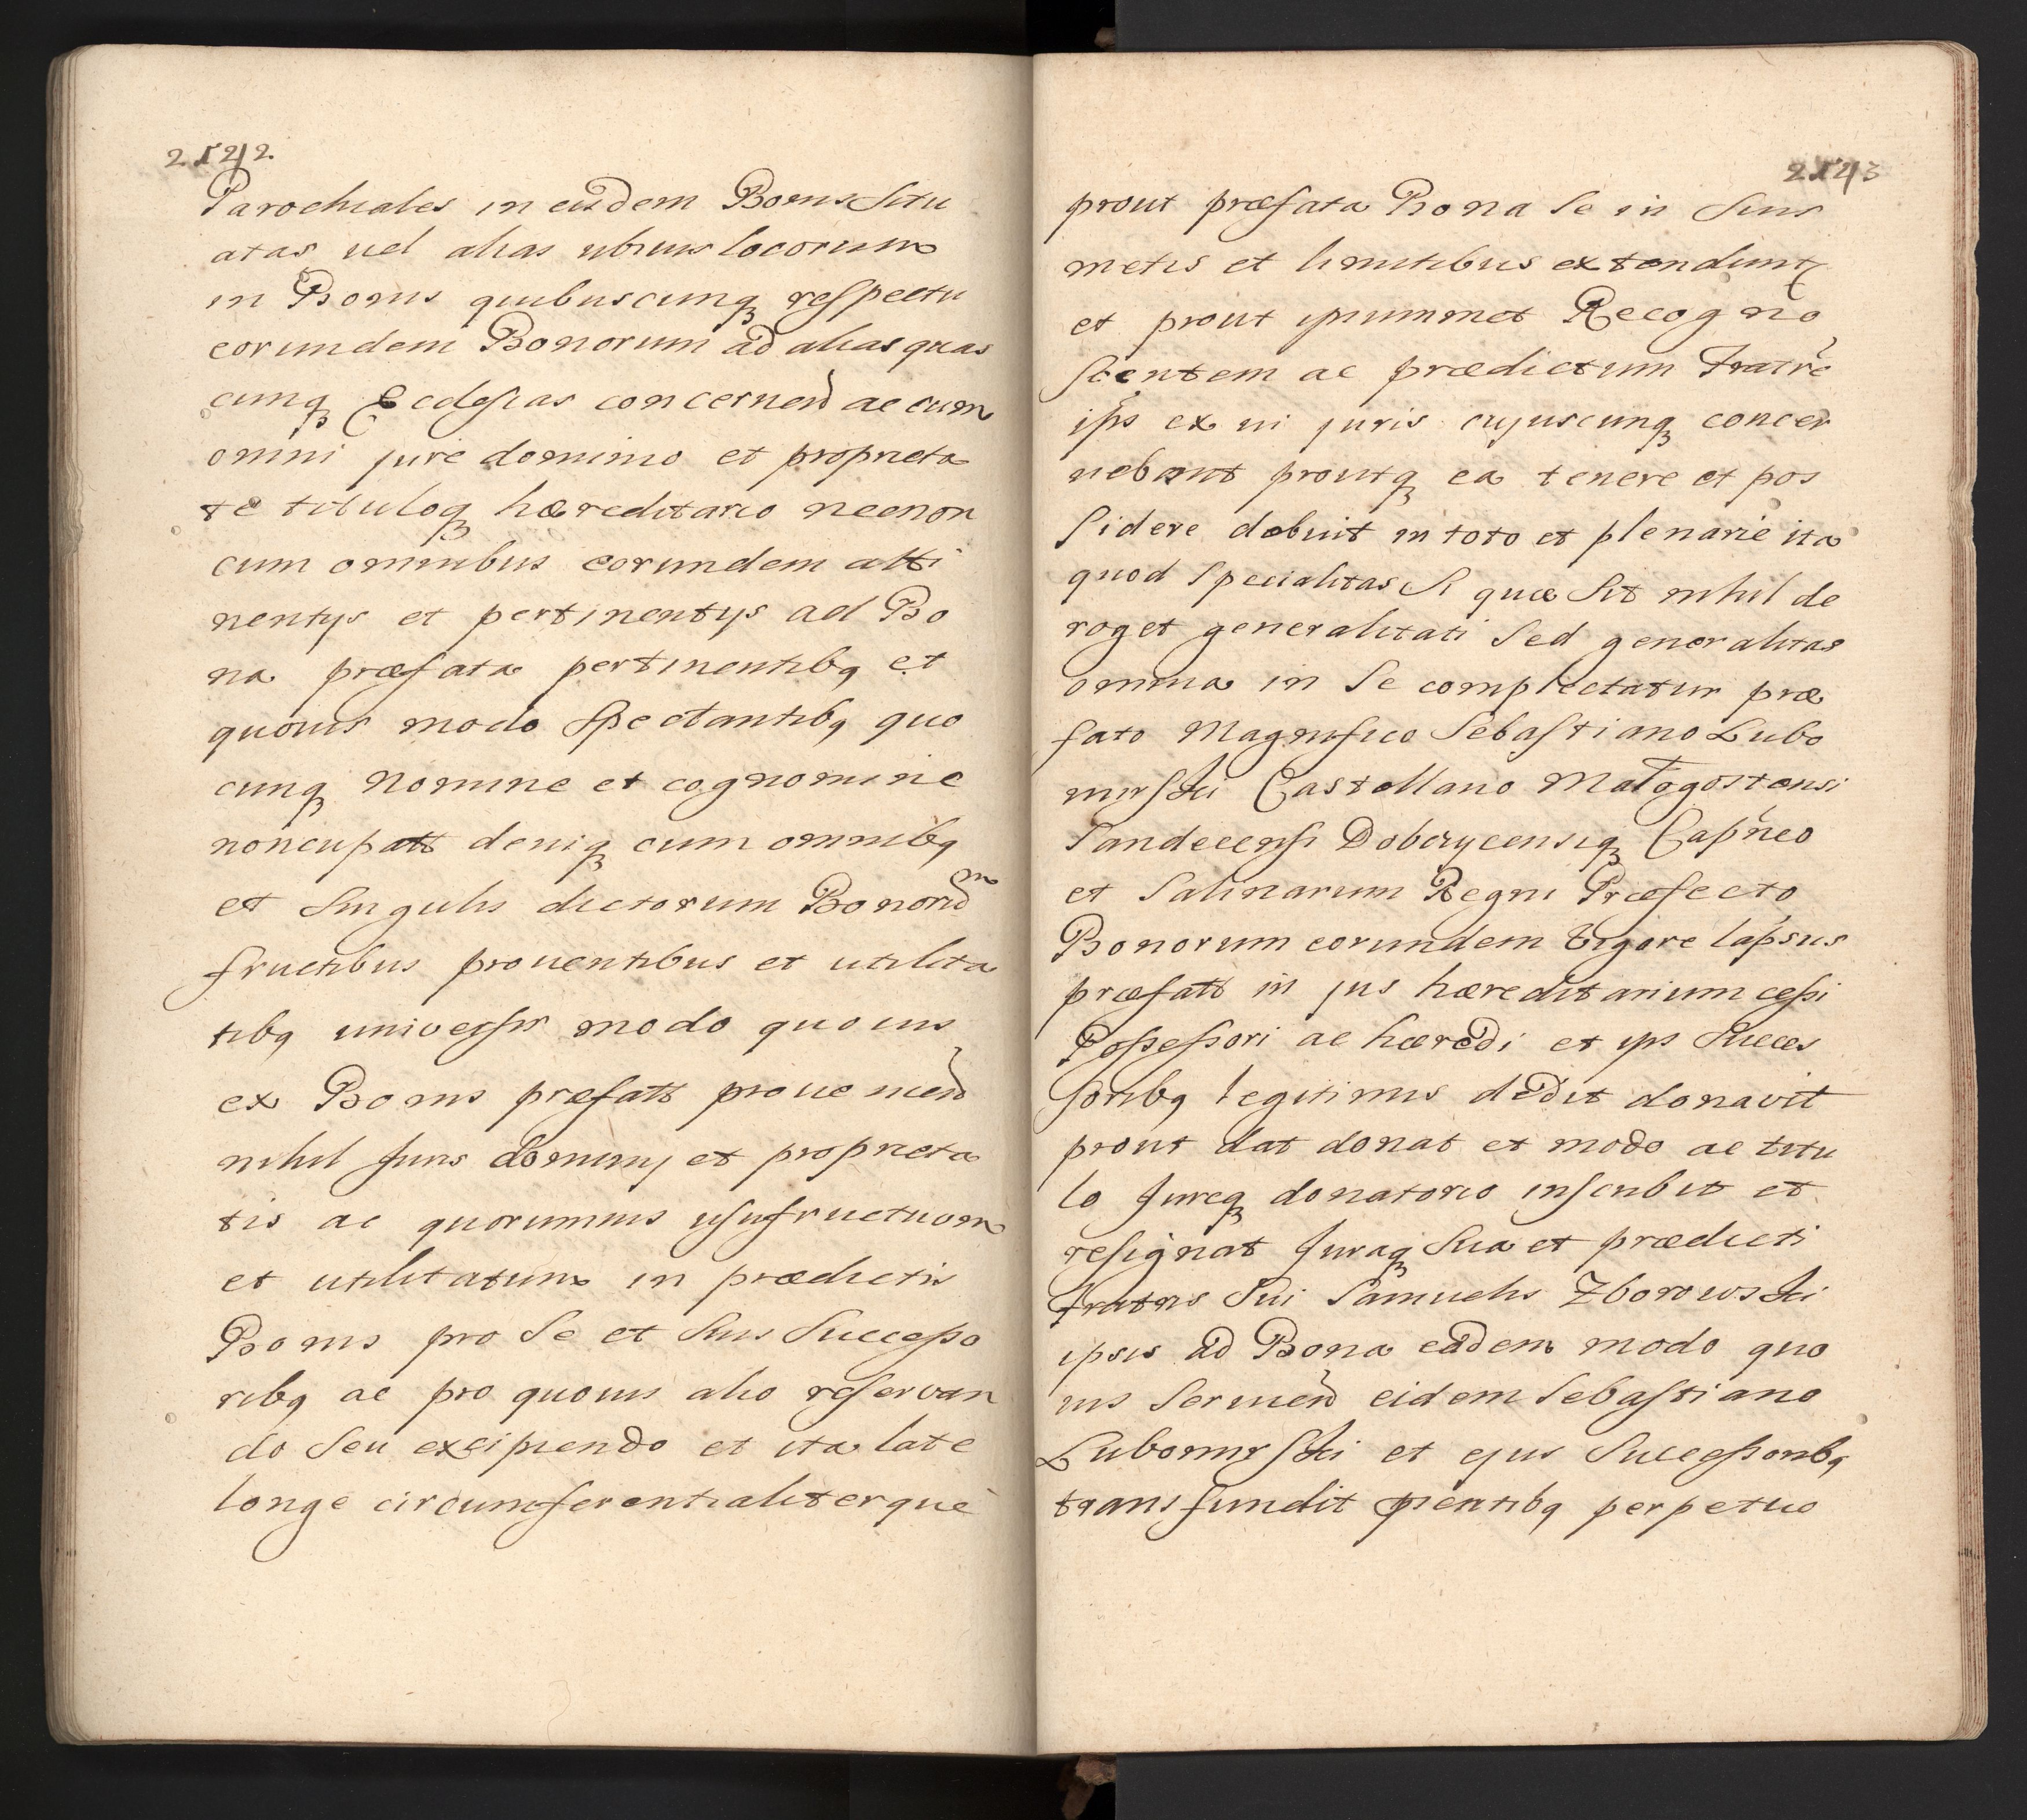 2142.
Parochiales in eisdem Bonis Situ
atas uel alias ubiuis locorum
in Bonis quibuscunq respectu
eorundem Bonorum ad alias quas
cunq Ecclesias concernen ac cum
omni jure dominio et proprieta
te tituloq hæreditario necnon
cum omnibus eorundem atti
nentys et pertinentys ad Bo
na præfata pertinentibq et
quouis modo Spectantibq quo
cunq Nomine et cognomine
noncupatt deniq cum omnibq
et Singulis dictorum Bonorum
fructibus prouentibus et utilita
tibq universis modo quouis
ex Bonis præfatt prouenien
nihil Juris dominy et proprieta
tis ac quorumuis usufructuum
et utilitatum in prædictis
Bonis pro Se et Suis Successo
ribq ac pro quouis alio reservan
do Seu excipiendo et ita late
longe circumferentialiterquè
2143
prout præfata Bona Se in Suis
metis et limitibus extendunt
et prout ipsummet Recogno
scentem ac prædictum Fratre
ips ex ui juris cujuscunq concer
nebant proutq ea tenere et pos
sidere debuit in toto et plenarie ita
quod Specialitas Si quæ Sit nihil de
roget generalitati Sed generalitas
omnia in Se complectatur præ
fato Magnifico Sebastiano Lubo
mirski Castellano Małogostensi
Sandecensi Dobczycensiq Capneo
et Salinarum Regni Præfecto
Bonorum eorundem Vigore lapsus
præfatt in jus hæreditarium cessi
Possessori ac hæredi et ips Succes
soribq legitimis dedit donavit
prout dat donat et modo ac titu
lo Jureq donatorio inscribit et
resignat Juraq Sua et prædicti
fratris Sui Samuelis Zborowski
ipsis ad Bona eadem modo quo
uis Seruien eidem Sebastiano
Lubomirski et ejus Successoribq
transfundit pientibq perpetuo